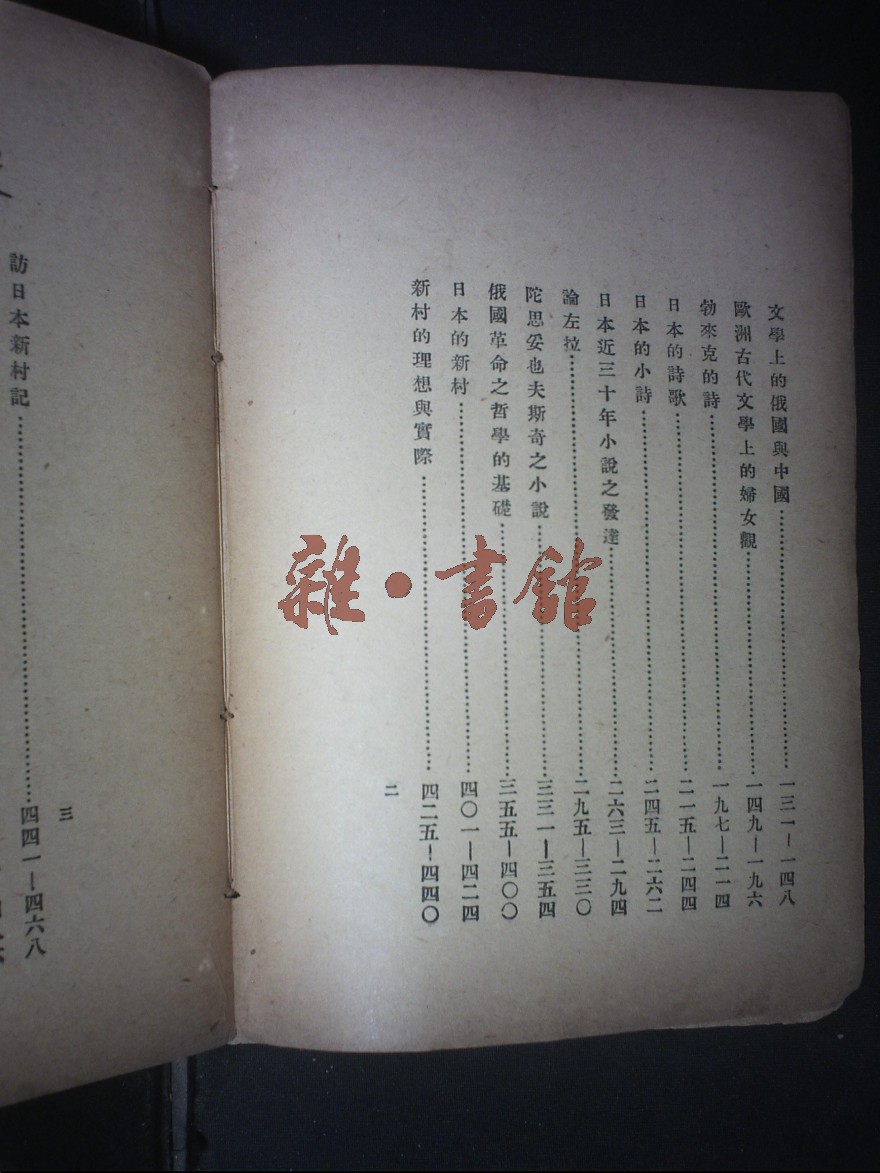 文學上的俄國與中國……一三一—一四八
歐洲古代文學上的婦女觀……一四九—一九六
勃來克的詩……一九七—二一四
日本的詩歌……二一五—二四四
日本的小詩……二四五—二六二
日本近三十年小說之發達……二六三—二九四
論左拉……二九五—三三〇
陀思妥也夫斯奇之小說……三三一—三五四
俄國革命之哲學的基礎……三五五—四〇〇
日本的新村……四〇一—四二四
新村的理想與實際……四二五—四四〇
二
三
訪日本新村記……四四一—四六八
雜·書館